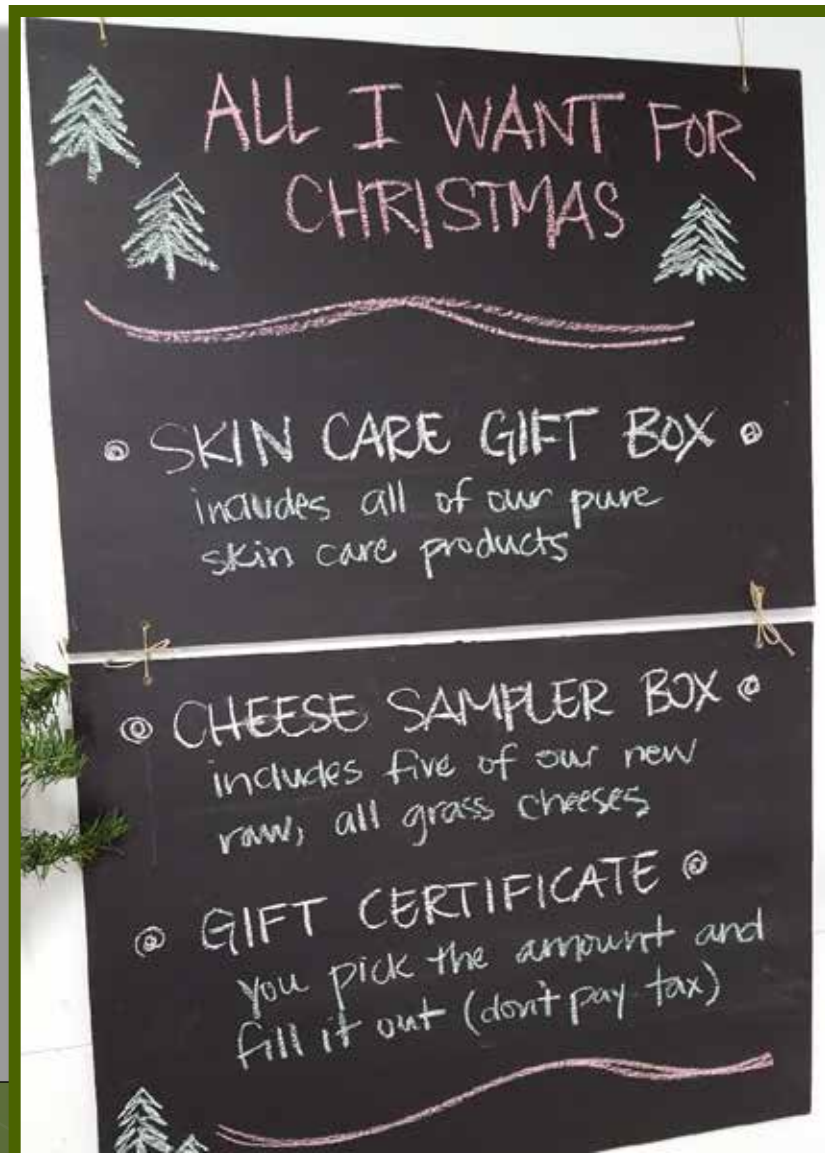 ALL I WANT FOR
CHRISTMAS
SKIN CARE GIFT BOX
includes all of our pure
skin care products
CHEESE SAMPLER BOX
includes five of our new
raw, all grass cheeses
GIFT CERTIFICATE
you pick the amount and
fill it out (don't pay tax)